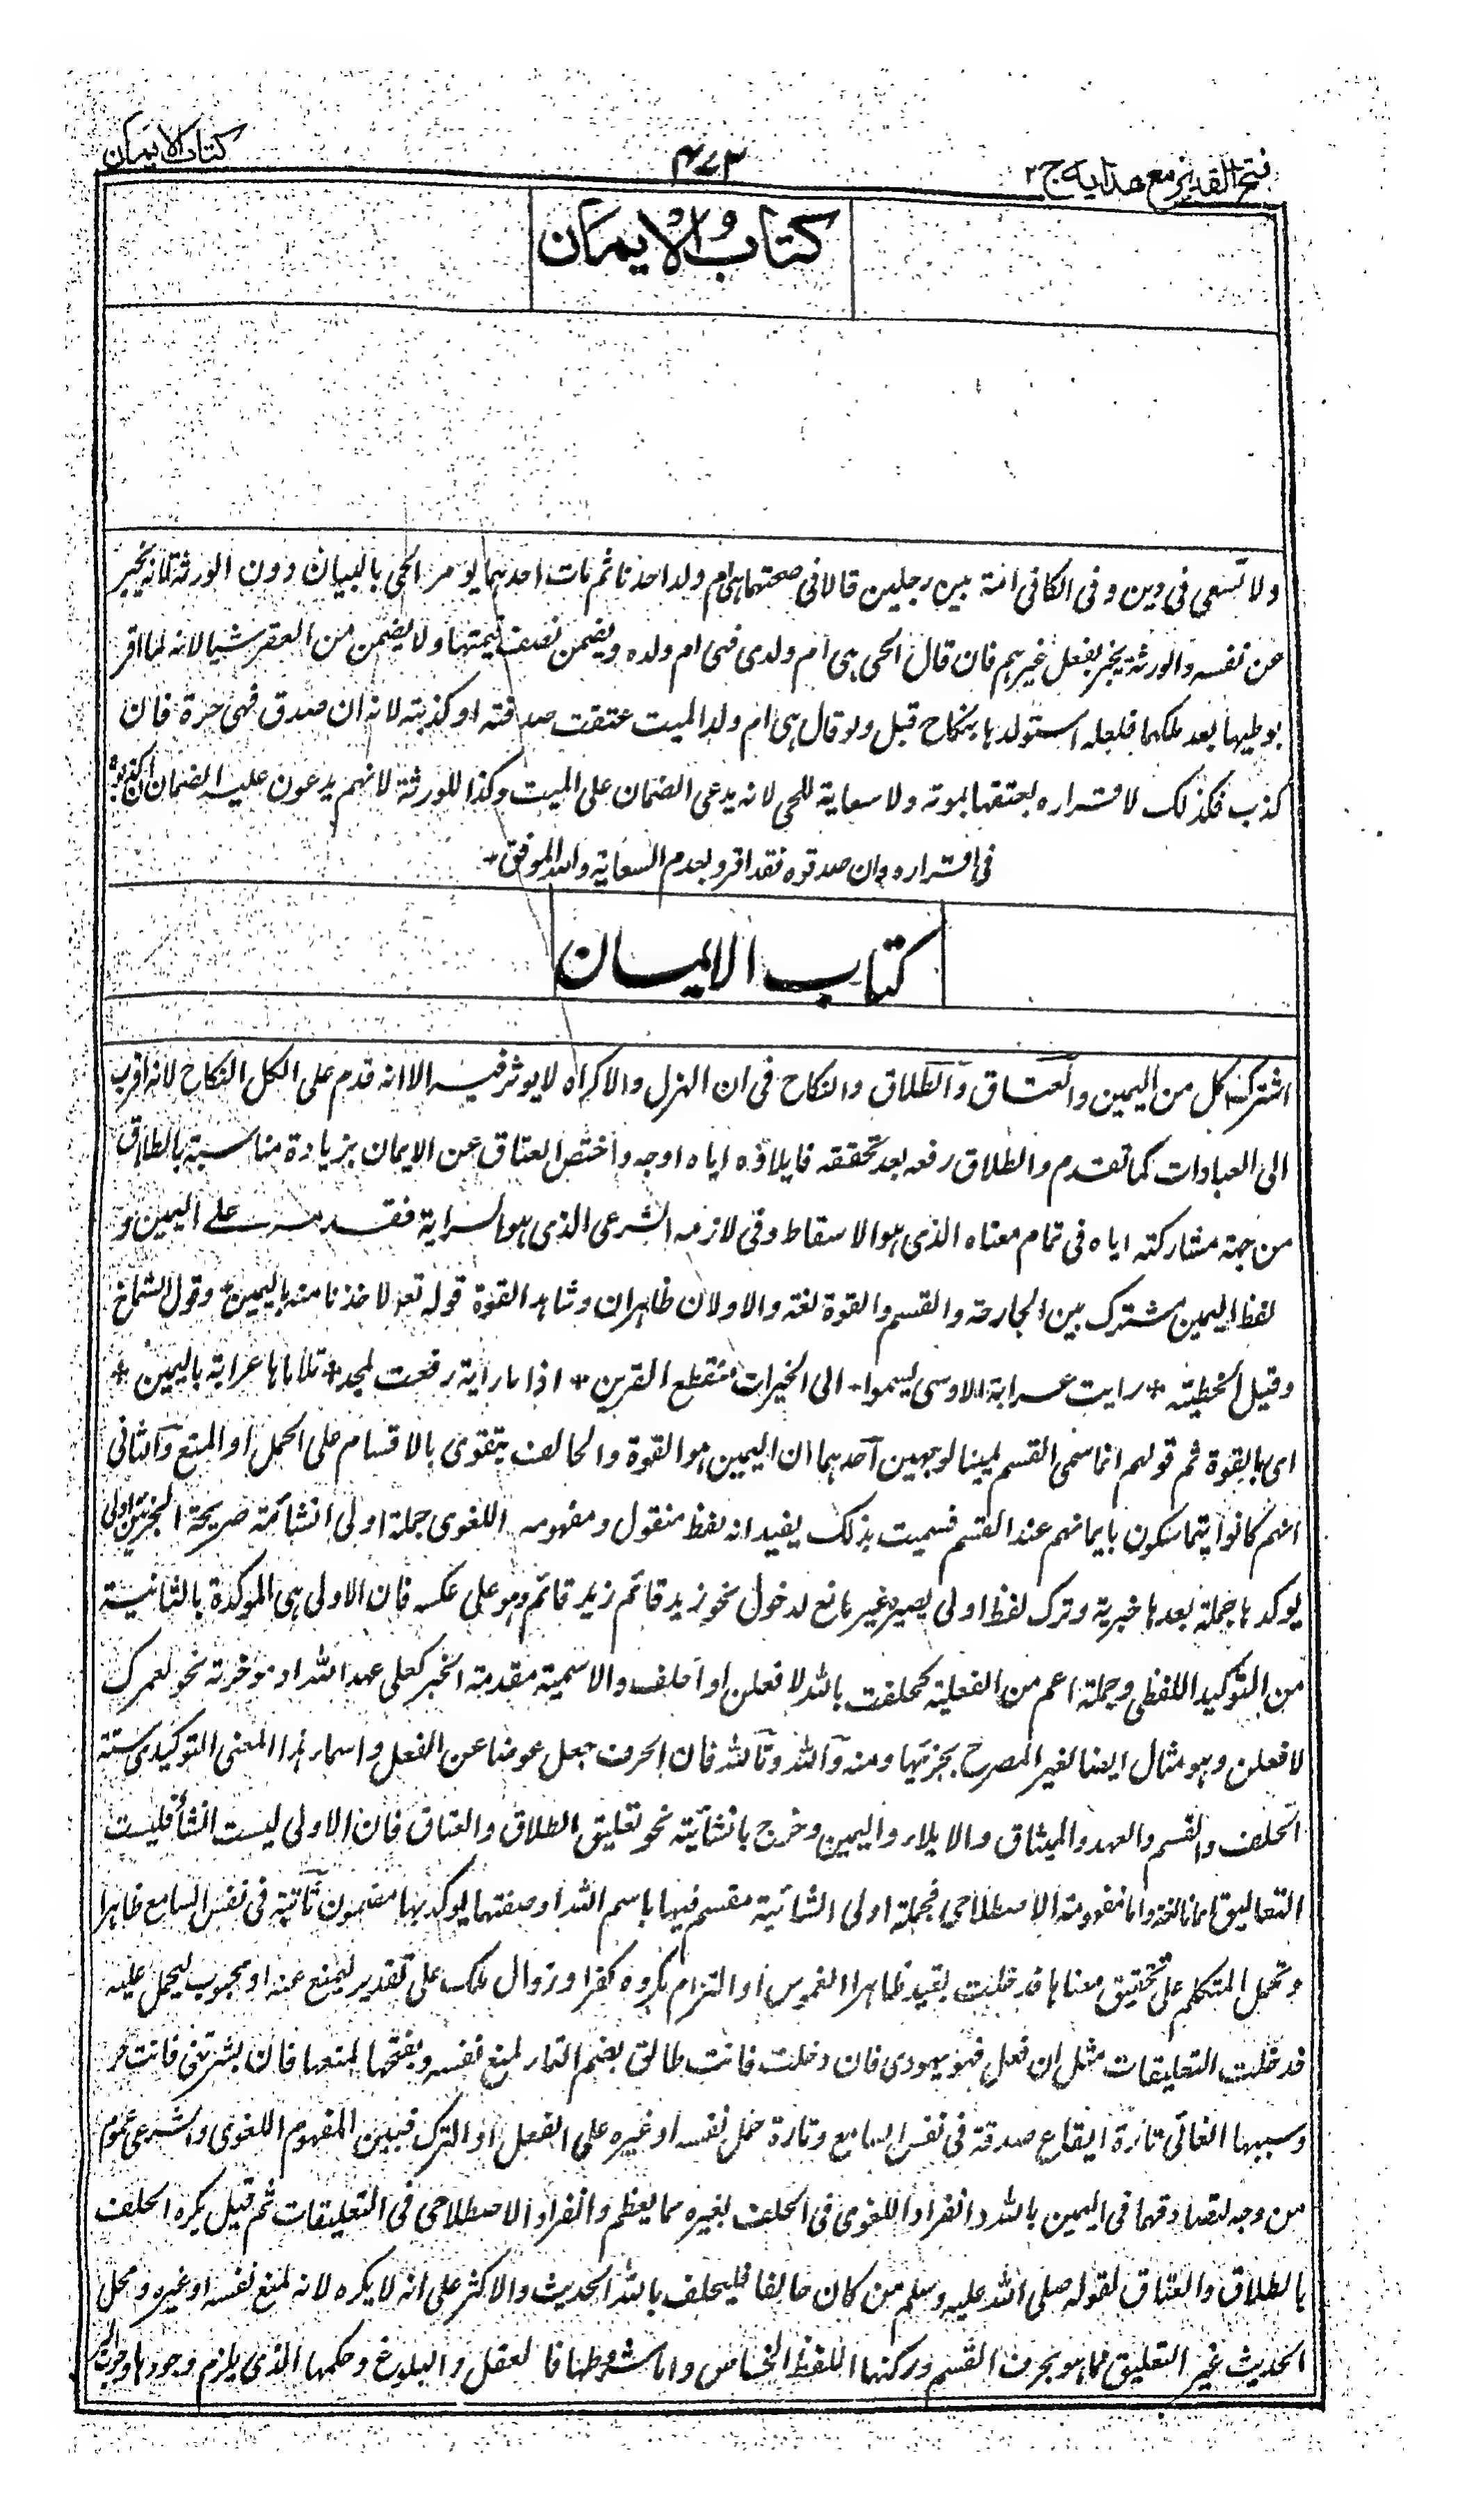 فتح القدير مع هدايه ج ٢
٤٧٣
كتاب الايمان
كتاب الايمان
ولا تسعى فى دين وفى الكافى امة بين رجلين قالا فى صحتهما هى ام ولد احدنا ثم مات احدهما يومر الحى بالبيان دون الورثة لانه يخبر
عن نفسه والورثة يخبر بفعل غيرهم فان قال الحى هى ام ولدى فهى ام ولده ويضمن نصف قيمتها ولا يضمن من العقر شيا لانه لما اقر
بوطيها بعد ملكهما فلعله استولدها بنكاح قبل ولو قال هى ام ولد الميت عتقت صدقته او كذبته لانه ان صدق فهى حرة فان
كذب فكذلك لاقراره بعتقها بموته ولا سعاية للحى لانه يدعى الضمان على الميت وكذا للورثة لانهم يدعون عليه الضمان ان كذبوه
فى اقراره وان صدقوه فقد اقروا بعدم السعاية والله الموفق
كتاب الايمان
اشترك كل من اليمين والعتاق والطلاق والنكاح فى ان الهزل والاكراه لا يوثر فيه الا انه قدم على الكل النكاح لانه اقرب
الى العبادات كما تقدم والطلاق رفعه بعد تحققه فايلاؤه اياه اوجه واختص العتاق عن الايمان بزيادة مناسبة بالطلاق
من جهة مشاركته اياه فى تمام معناه الذى هو الاسقاط وفى لازمه الشرعى الذى هو السراية فقدمه على اليمين و
لفظ اليمين مشترك بين الجارحة والقسم والقوة لغة والاولان ظاهران وشاهد القوة قوله تعر لاخذنا منه باليمين وقول الشماخ
وقيل الخطيئه * رايت عرابة الاوسى يسموا - الى الخيرات منقطع القرين * اذا ما راية رفعت لمجد * تلاباها عرابة باليمين *
اى بها بقوة ثم قولهم انما سمى القسم يمينا لوجهين احدهما ان اليمين هو القوة والحالف يتقوى بالاقسام على الحمل او المنع والثانى
انهم كانوا يتماسكون بايمانهم عند القسم فسميت بذلك يفيد انه لفظ منقول ومفهومه اللغوى جملة اولى انشائية صريحة الجزئين اولى
يوكدها جملة بعدها خبرية وترك لفظ اولى يصيره غير مانع لدخول نحو زيد قائم زيد قائم وهو على عكسه فان الاولى هى الموكدة بالثانية
من التوكيد اللفظى وجملة اعم من الفعلية كحلفت بالله لافعلن او احلف والاسمية مقدمة الخبر كعلى عهد الله او موخرته نحو لعمرك
لافعلن وهو مثال ايضا لغير المصرح بجزئيها ومنه والله وتالله فان الحرف جعل عوضا عن الفعل واسماء هذا المعنى التوكيدى ستة
الحلف والقسم والعهد والميثاق والايلاء واليمين وخرج بانشائية نحو تعليق الطلاق والعتاق فان الاولى ليست انشأ فليست
التعاليق ايمانا لغة واما مفهومه الاصطلاحى فجملة اولى انشائية مقسم فيها باسم الله او صفتها يوكد بها مضمون ثانية فى نفس السامع ظاهرا
وتحمل المتكلم على تحقيق معناها فدخلت بقيد ظاهرا الغموس او التزام مكروه كفرا وزوال ملك على تقدير ليمنع عنه او محبوب ليحمل عليه
فدخلت التعليقات مثل ان فعل فهو يهودى فان دخلت فانت طالق بضم التاء لمنع نفسه وبفتحها لمنعها فان بشرتنى فانت حر
وسببها الغائى تارة ايقاع صدقه فى نفس السامع وتارة حمل نفسه او غيره على الفعل او الترك فبين المفهوم اللغوى والشرعى عموم
من وجه لتصادقهما فى اليمين بالله وانفراد اللغوى فى الحلف بغيره مما يعظم وانفراد الاصطلاحى فى التعليقات ثم قيل يكره الحلف
بالطلاق والعتاق لقوله صلى الله عليه وسلم من كان حالفا فليحلف بالله الحديث والاكثر على انه لا يكره لانه لمنع نفسه او غيره ومحل
الحديث غير التعليق مما هو بحرف القسم وركنها اللفظ الخاص واما شروطها فالعقل والبلوغ وحكمها الذى يلزم وجودها وجوب